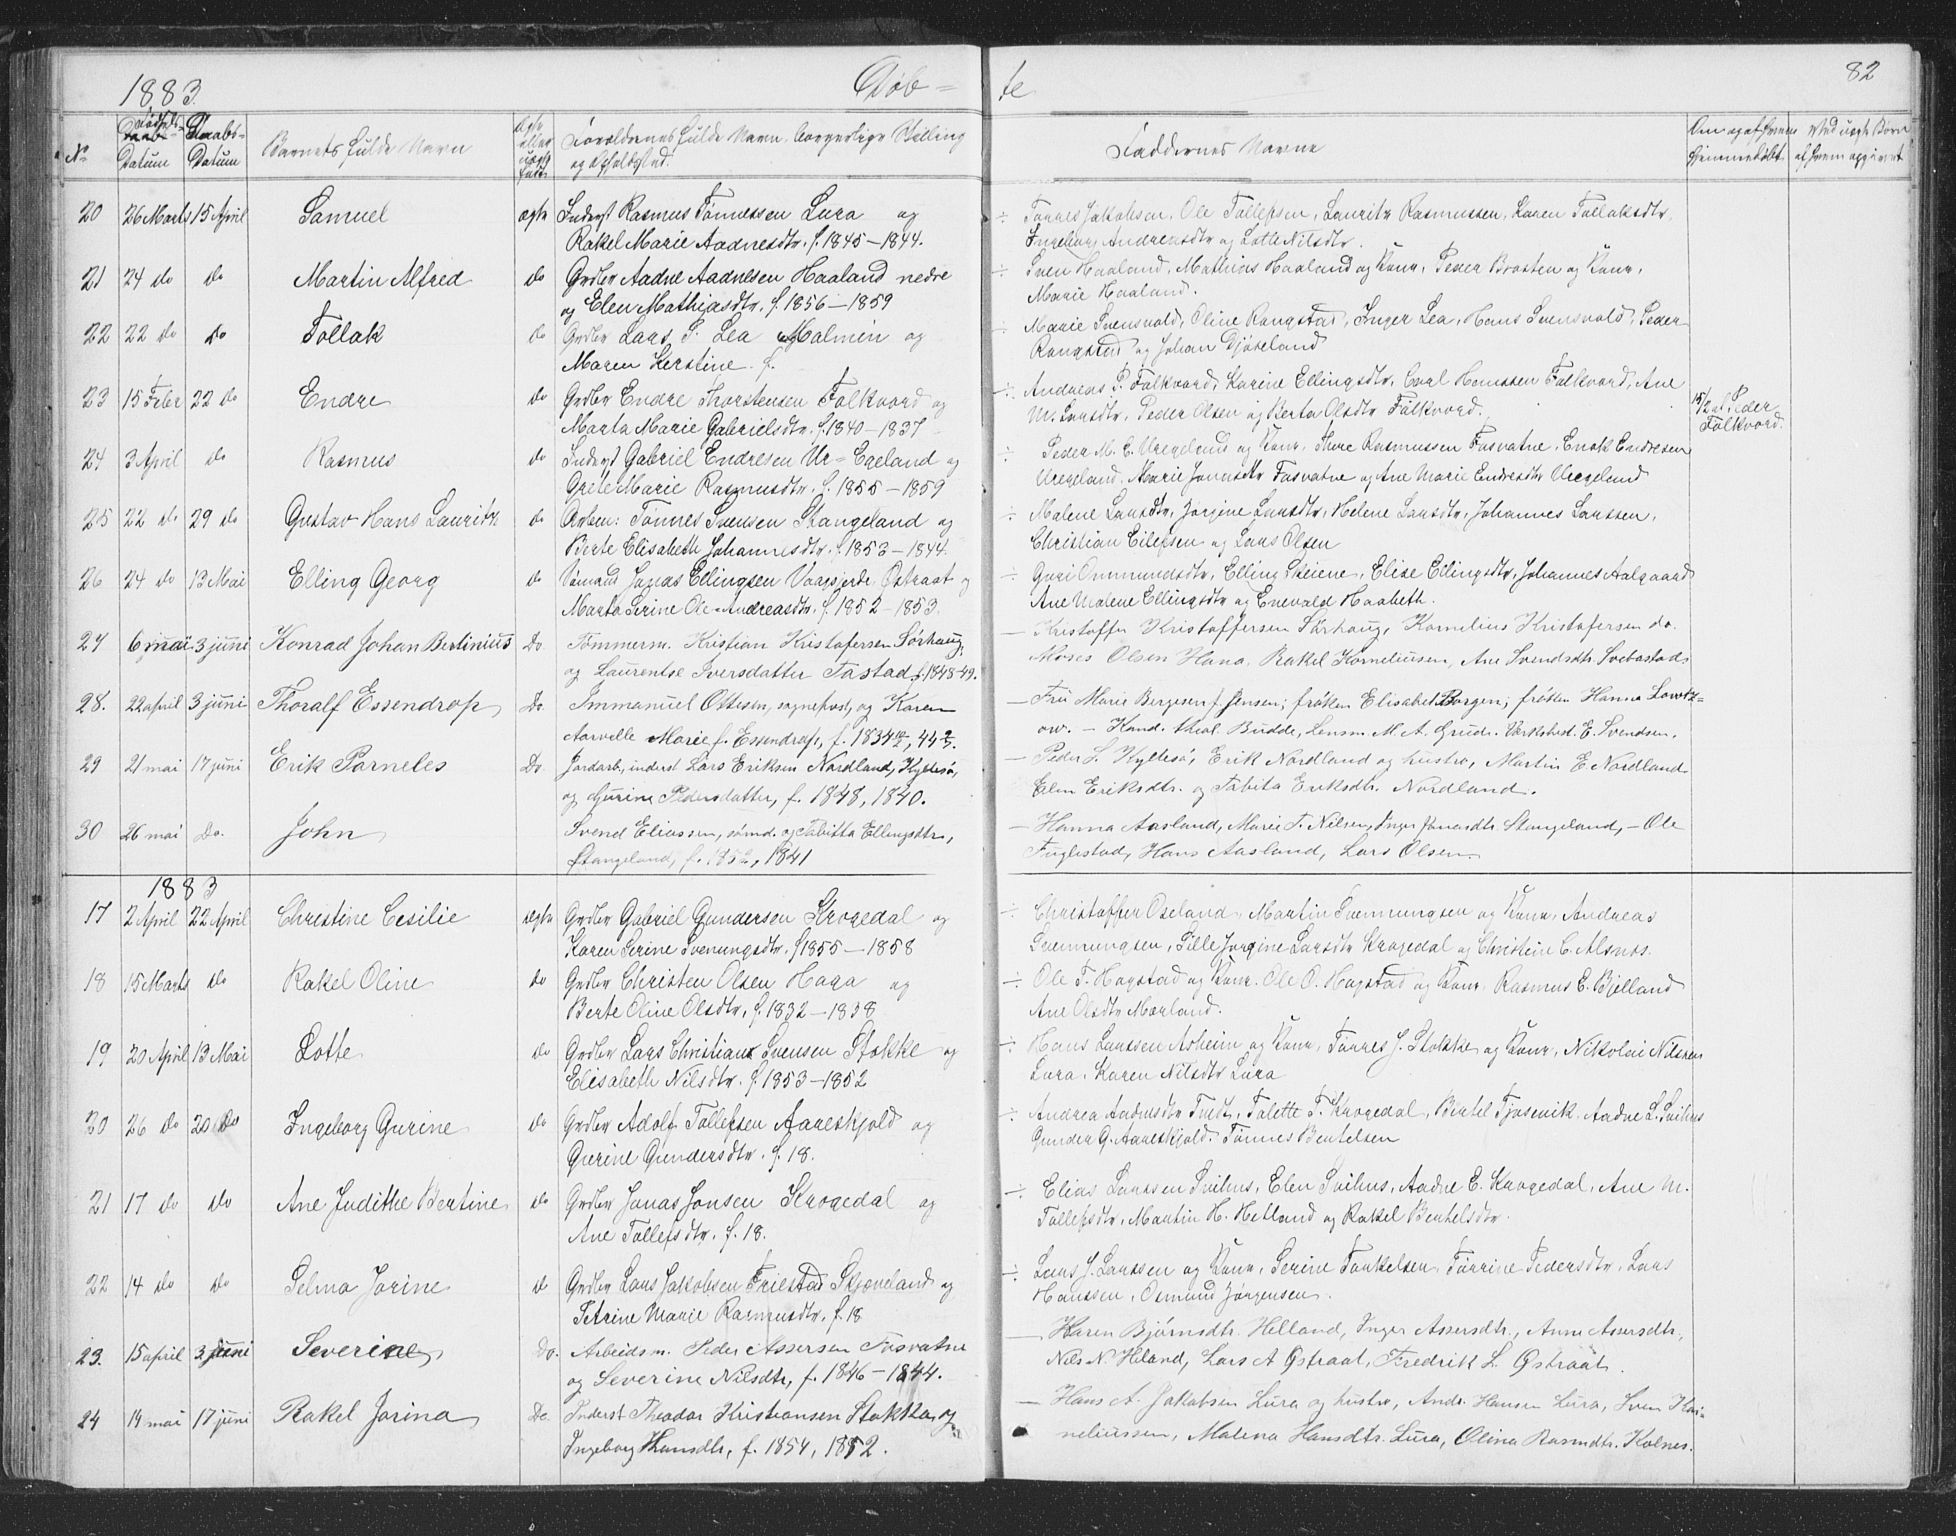 1883. Døb- te 82
No Fødsels- Datum Daabs- Datum Barnets fulde Navn Ægte eller uægte født Forældrenes fulde Navn, borgerlige Stilling
og Opholdsted. Faddernes Navne Om og af hvem hjemmedøbt Ved uægte Børn af hvem opgivet
20 26 Marts 15 April Samuel ægte Inderst Rasmus Tønnessen Lura og ÷ Tørres Jakobsen, Ole Tollefsen, Lauritz Rasmussen, Karen Tollaksdtr,
Rakel Marie Aadnesdtr. f. 1845 – 1844. Ingeborg Andreasdtr og Lotte Nilsdtr.
21 24 do do Martin Alfred do Grdbr Aadne Aadnesen Haaland nedre ÷ Sven Haaland, Mathias Haaland og Kone, Peder Braaten og Kone,
og Elen Mathiasdtr. f. 1856 – 1859 Marie Haaland.
22 22 do do Tollak do Grdbr Lars S. Lea Malmin og ÷ Marie Svensvold, Oline Rangstad, Inger Lea, Hans Svensvold, Peder
Maren Kerstine. f. Rangstad og Johan Gjøseland
23 15 Febr 22 do Endre do Grdbr Endre Thorstensen Folkvord og ÷ Andreas P. Folkvord, Karine Ellingsdtr, Carl Hanssen Folkvord, Ane
Marta Marie Gabrielsdtr. f. 1840 – 1837 M. Larsdtr, Peder Olsen og Berta Olsdtr Folkvord. 15/2 af Peder Folkvord.
24 3 April do Rasmus do Inderst Gabriel Endresen Ur=Egeland og Peder M. E. Uregeland og Kone, Thore Rasmussen Fosvatne, Enok Endresen
Grete Marie Rasmusdtr. f. 1855 – 1859 Uregeland, Marie Jonasdtr Fosvatne og Ane Marie Endresdtr Uregeland
25 22 do 29 do Gustav Hans Lauritz do Arben: Tønnes Svensen Stangeland og ÷ Malene Larsdtr, Jørgine Larsdtr, Helene Larsdtr, Johannes Larssen,
Berte Elisabeth Johannesdtr. f. 1853 – 1844. Christian Eilefsen og Lars Olsen
26 24 do 13 Mai Elling Georg do Sømand Jonas Ellingsen Vaagsgjerde Østraat og ÷ Guri Ommundsdtr, Elling Skeiene, Elise Ellingsdtr, Johannes Aalgaard
Marta Serine Ole-Andreasdtr. f. 1852 – 1853. Ane Malene Ellingsdtr og Enevald Haabeth.
27 6 mai 3 juni Konrad Johan Bertinius Do. Tømmerm. Kristian Kristofersen Sørhaug, — Kristoffer Kristoffersen Sørhaug, Kornelius Kristofersen do.
og Laurentse Iversdatter Tastad, f. 1848-49. Moses Olsen Hana, Rakel Korneliusen, Ane Svendsdtr. Svebastad.
28. 22 april 3 juni Thoralf Essendrop Do. Immanuel Ottesen, sogneprest, og Karen — Fru Marie Bergesen f. Jensen; frøken Elisabet Borgen; frøken Hanna Lowtz=
Aarvelle Marie f. Essendrop, f. 1834, 44. ow. – Kand. theol. Budde, Lensm. M. A. Grude. Verksbed. E. Svendsen.
29 21 mai 17 juni Erik Parneles Do. Jordarb., inderst Lars Eriksen Nordland, Kyllesø, — Peder L. Kyllesø, Erik Nordland og hustro, Martin E. Nordland
og Gurine Pedersdatter, f. 1848, 1840. Elen Eriksdtr. og Tabita Eriksdtr. Nordland.
30 26 mai Do. John Svend Eliassen, sømd. og Tabitta Ellingsdtr, — Hanna Aasland, Marie T. Nilsen, Inger Jonasdtr. Stangeland, – Ole
Stangeland, f. 1852, 1841 Fuglestad, Hans Aasland, Lars Olsen.
1883
17 2 April 22 April Christine Cesilie ægte Grdbr Gabriel Gundersen Krogedal og ÷ Christoffer Oseland, Martin Svenningsen og Kone, Andreas
Karen Serine Svenungsdtr. f 1855 – 1858 Svennungsen, Sille Jørgine Larsdtr Krogedal og Christine C. Alsnes.
18 15 Marts do Rakel Oline do Grdbr Christen Olsen Haga og ÷ Ole T. Hogstad og Kone. Ole O. Hogstad og Kone, Rasmus E. Bjelland
Berte Oline Olsdtr. f. 1832 – 1838 Ane Olsdtr Morland.
19 20 April 13 Mai Lotte do Grdbr Lars Christian Svensen Stokke og ÷ Hans Larssen Asheim og Kone, Tørres J. Stokke og Kone, Nikolai Nilssen
Elisabeth Nilsdtr. f. 1853 – 1852 Lura, Karen Nilsdtr Lura
20 26 do 20 do Ingeborg Gurine do Grdbr Adolf Tollefsen Aareskjold og ÷ Andrea Aadnesdtr Tvedt, Tolette T. Krogedal, Bertel Fjosevik, Aadne L. Svihus
Gurine Gundersdtr. f. 18. Gunder G. Aareskjold, Tønnes Bertelsen
21 17 do do Ane Judithe Bertine do Grdbr Jonas Jonsen Krogedal og ÷ Elias Larssen Svihus, Elen Svihus, Aadne E. Krogedal, Ane M.
Ane Tollefsdtr. f. 18. Tollefsdtr, Martin H. Hetland og Rakel Bertelsdtr.
22 14 do do Selma Jorine do Grdbr Lars Jakobsen Friestad Skjæveland og ÷ Lars J. Larssen og Kone, Serine Torkelsen, Tørrine Pedersdtr, Lars
Petrine Marie Rasmusdtr. f. 18 Hanssen, Osmund Jørgensen.
23. 15 april 3 juni Severine Do. Arbeidsm. Peder Assersen Fosvatne — Karen Bjørnsdtr. Helland, Inger Assersdtr, Anne Assersdtr,
og Severine Nilsdtr, f. 1846 – 1844. Nils N. Heland, Lars A Østraat, Fredrik L. Østraat.
24 19 mai 17 juni Rakel Jorina Do. Inderst Theodor Kristiansen Stokka og — Hans A. Jakobsen Lura og hustro, Andr. Hansen Lura, Sven Kor-
Ingeborg Hansdtr, f. 1854, 1852. neliussen, Malena Hansdtr. Lura, Olina Rasmdtr. Kolnes.